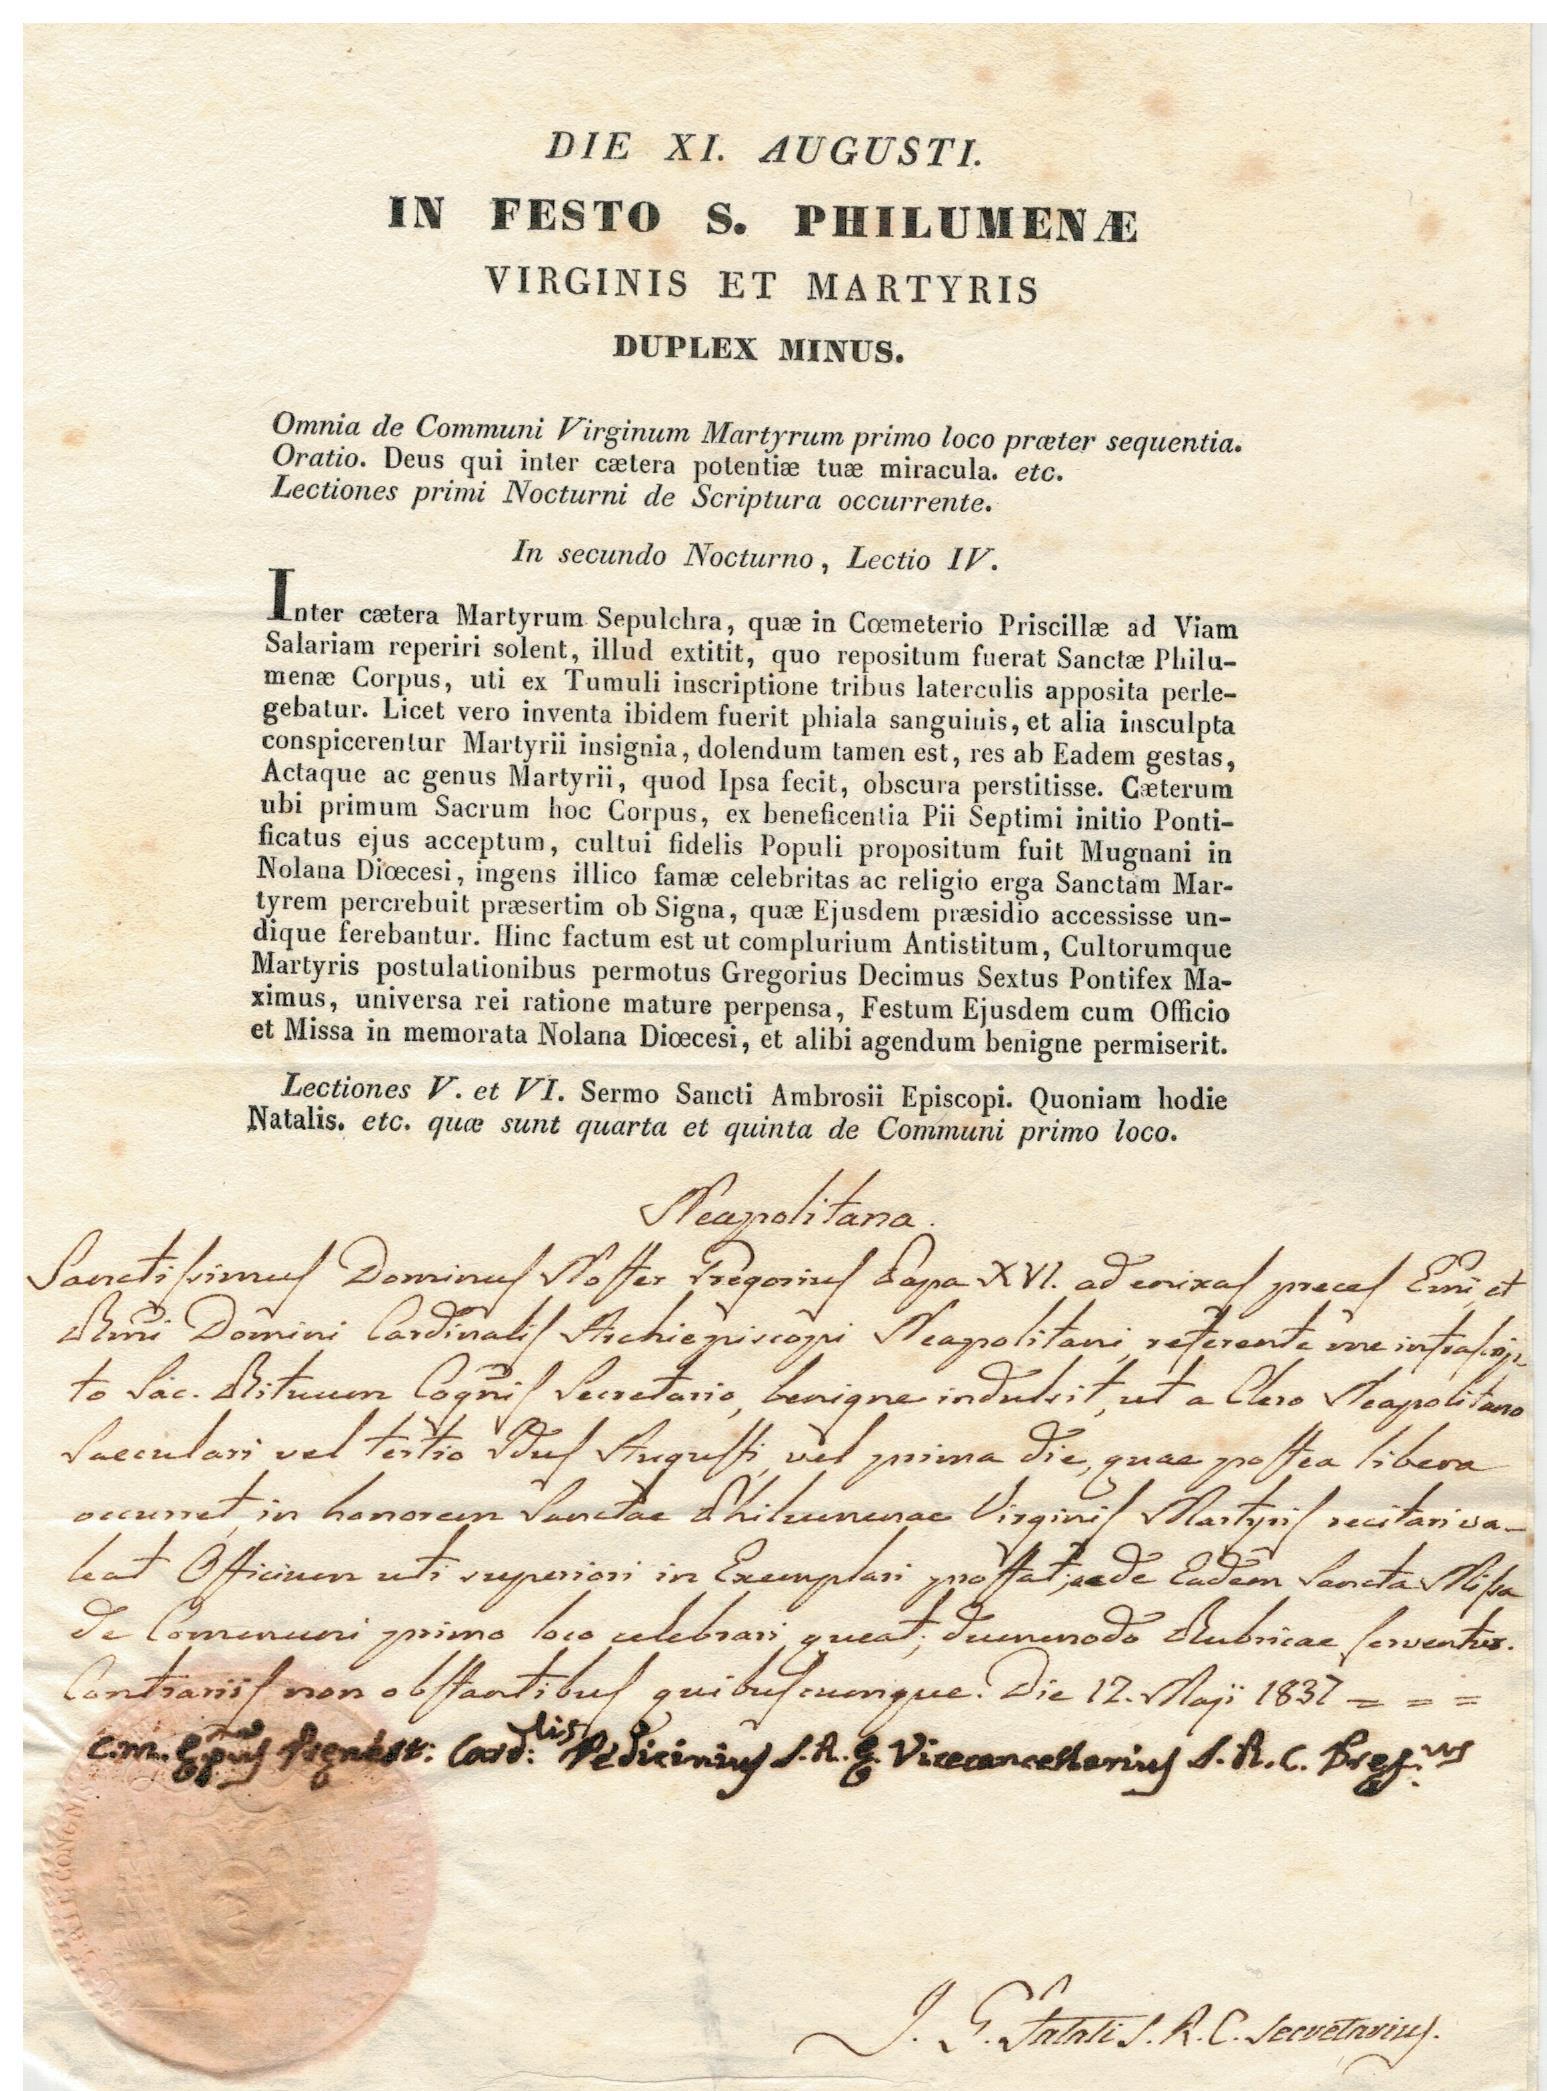 DIE XI. AUGUSTI.
IN FESTO S. PHILUMENÆ
VIRGINIS ET MARTYRIS
DUPLEX MINUS.
Omnia de Communi Virginum Martyrum primo loco præter sequentia.
Oratio. Deus qui inter cætera potentiæ tuæ miracula. etc.
Lectiones primi Nocturni de Scriptura occurrente.
In secundo Nocturno, Lectio IV.
Inter cætera Martyrum Sepulchra, quæ in Cœmeterio Priscillæ ad Viam
Salariam reperiri solent, illud extitit, quo repositum fuerat Sanctæ Philu-
menæ Corpus, uti ex Tumuli inscriptione tribus laterculis apposita perle-
gebatur. Licet vero inventa ibidem fuerit phiala sanguinis, et alia insculpta
conspicerentur Martyrii insignia, dolendum tamen est, res ab Eadem gestas,
Actaque ac genus Martyrii, quod Ipsa fecit, obscura perstitisse. Cæterum
ubi primum Sacrum hoc Corpus, ex beneficentia Pii Septimi initio Ponti-
ficatus ejus acceptum, cultui fidelis Populi propositum fuit Mugnani in
Nolana Diœcesi, ingens illico famæ celebritas ac religio erga Sanctam Mar-
tyrem percrebuit præsertim ob Signa, quæ Ejusdem præsidio accessisse un-
dique ferebantur. Hinc factum est ut complurium Antistitum, Cultorumque
Martyris postulationibus permotus Gregorius Decimus Sextus Pontifex Ma-
ximus, universa rei ratione mature perpensa, Festum Ejusdem cum Officio
et Missa in memorata Nolana Diœcesi, et alibi agendum benigne permiserit.
Lectiones V. et VI. Sermo Sancti Ambrosii Episcopi. Quoniam hodie
Natalis. etc. quæ sunt quarta et quinta de Communi primo loco.
Neapolitana.
Sanctissimus Dominus Noster Gregorius Papa XVI. ad enixas preces Emi et
Rmi Domini Cardinalis Archiepiscopi Neapolitani, referente me infrascrip-
to Sac. Rituum Cognis Secretario, benigne indulsit, ut a Clero Neapolitano
Saeculari vel tertio Idus Augusti, vel prima die, quae postea libera
occurret, in honorem Sanctae Philumenae Virginis Martyris recitari va-
leat Officium uti superiori in Exemplari prostat, ac de Eadem Sancta Missa
de Communi primo loco celebrari queat; dummodo Rubricae serventur.
Contrariis non obstantibus quibuscumque. Die 12. Maji 1837 = = =
C.M. Epus Prænest: Card:lis Pedicinius S.R.E. Vicecancellarius S.R.C. Præf:us
J. G. Fatati S.R.C. Secretarius.